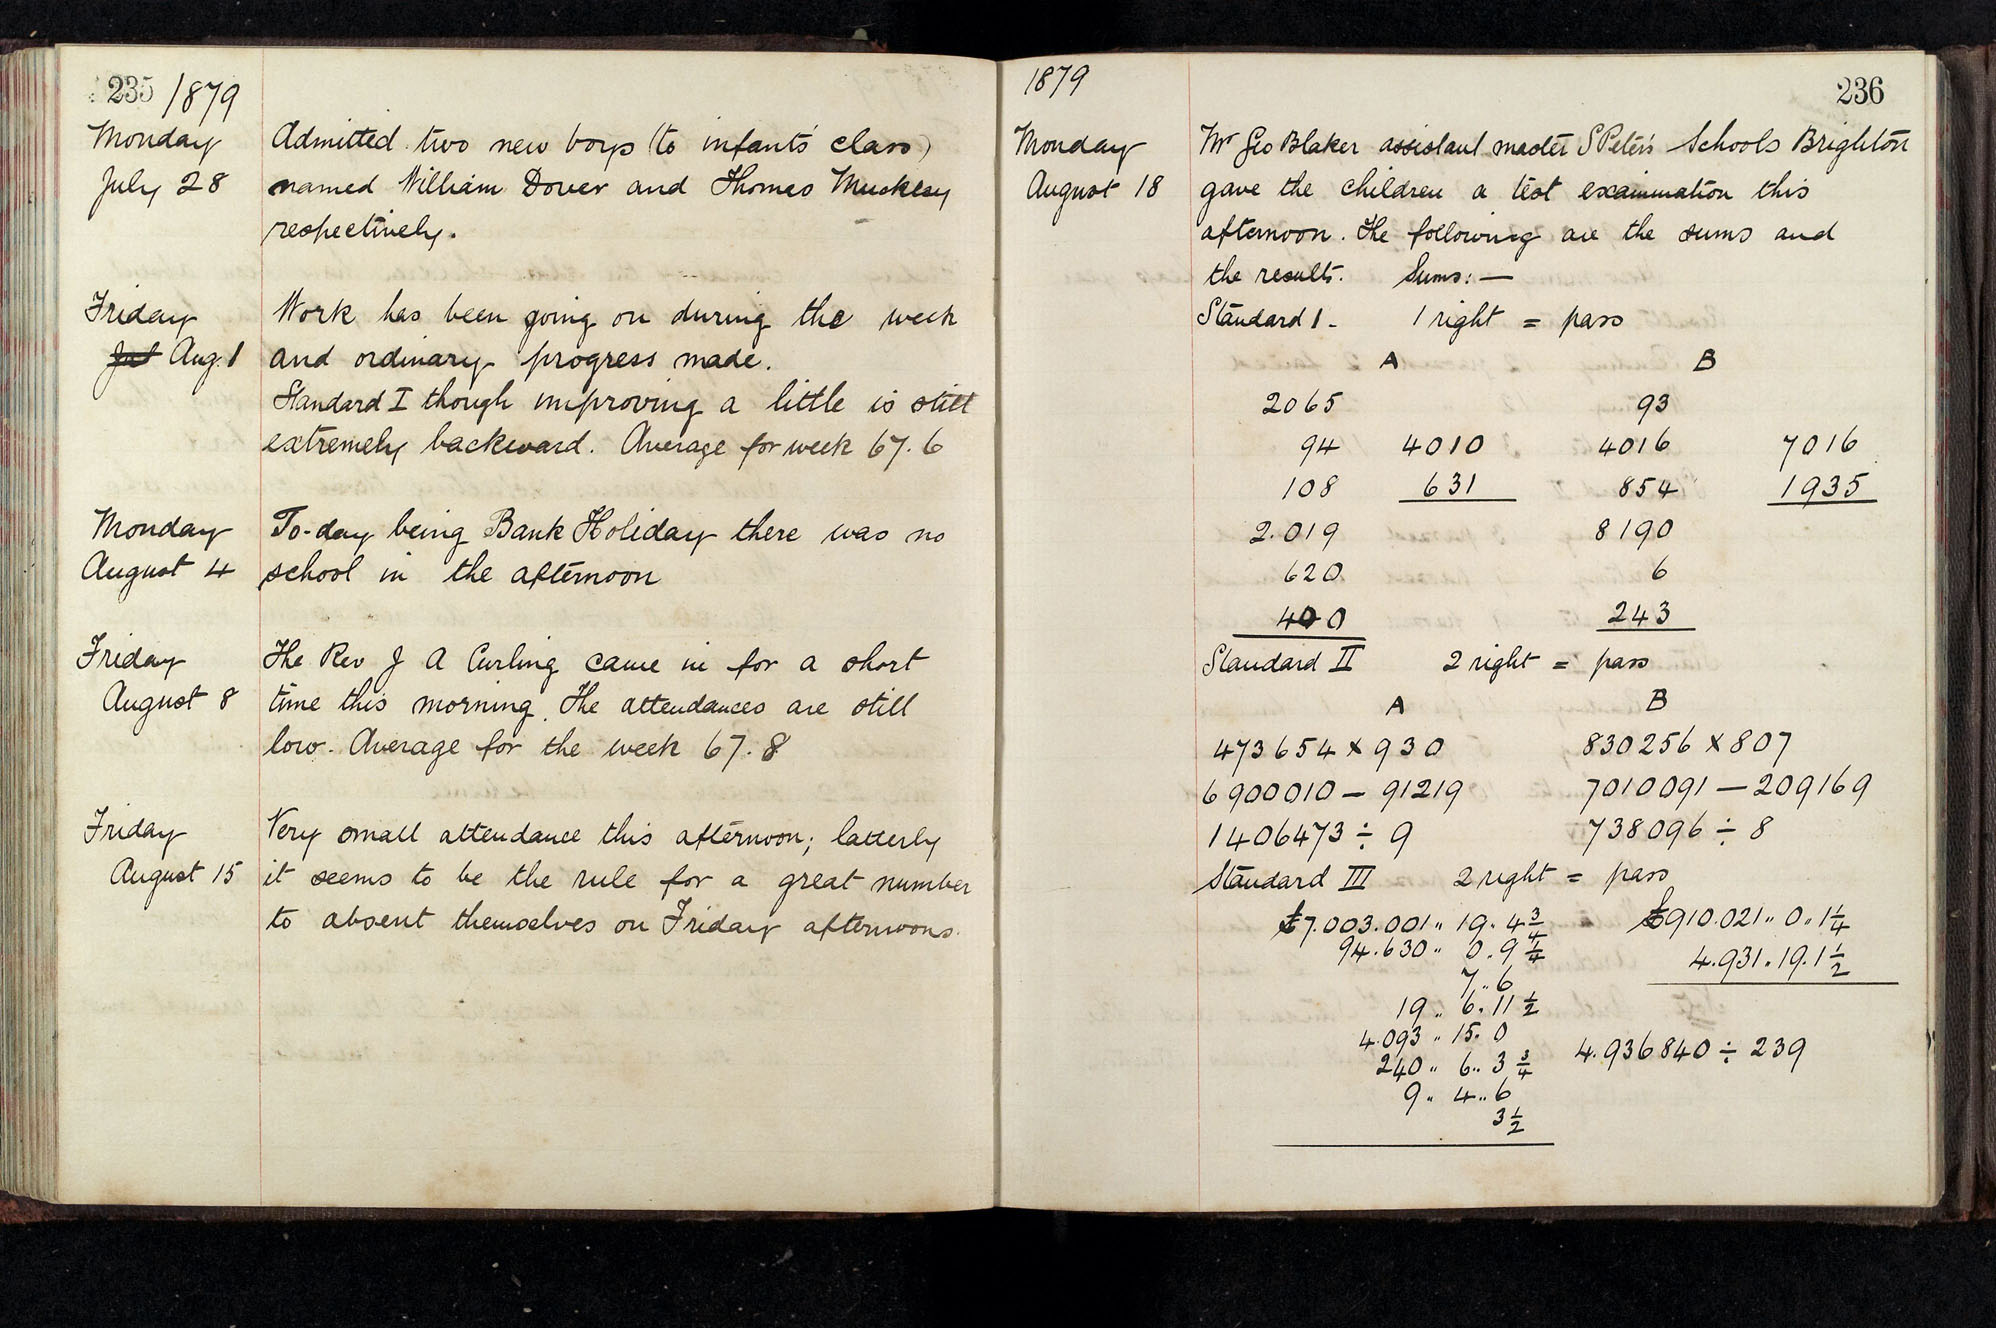 235 1879
Monday Admitted two new boys (to infants' class)
July 28 named William Dover and Thomas
respectively.
Friday Work has been going on during the week
Jul Aug. 1 and ordinary progress made.
Standard I though improving a little is still
extremely backward. Average for week 67.6
Monday To-day being Bank Holiday there was no
August 4 school in the afternoon
Friday The Rev J A Curling came in for a short
August 8 time this morning. The attendances are still
low. Average for the week 67.8
Friday Very small attendance this afternoon; latterly
August 15 it seems to be the rule for a great number
to absent themselves on Friday afternoons.
1879 236
Monday Mr Geo Blaker assistant master S Peter's Schools Brighton
August 18 gave the children a test examination this
afternoon. The following are the sums and
the results. Sums:—
Standard I - 1 right = pass
A B
2065 93
94 4010 4016 7016
108 631 854 1935
2.019 8190
620 6
400 243
Standard II 2 right = pass
A B
473654 × 930 830256 × 807
6900010 — 91219 7010091 — 209169
1406473 ÷ 9 738096 ÷ 8
Standard III 2 right = pass
£7.003.001 " 19 " 4 3/4 £910.021 " 0 " 1 1/4
94.630 " 0 . 9 1/4 4.931 . 19 . 1 1/2
7 " 6
19 " 6 . 11 1/2
4.093 " 15 . 0
240 " 6 " 3 3/4 4.936840 ÷ 239
9 " 4 " 6
3 1/2